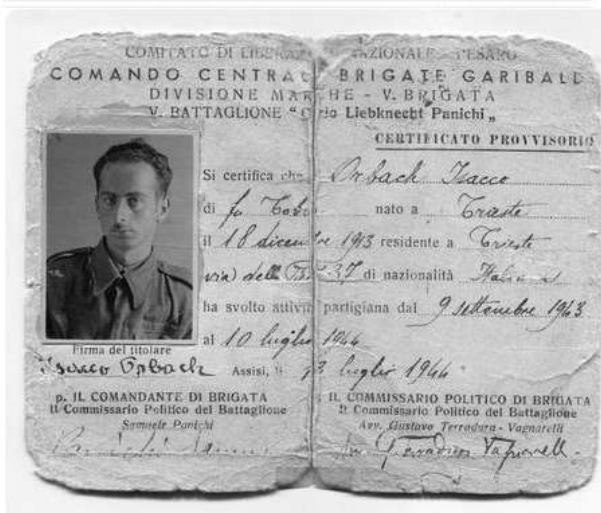 COMITATO DI LIBERAZIONE NAZIONALE - PESARO
COMANDO CENTRALE BRIGATE GARIBALDI
DIVISIONE MARCHE - V. BRIGATA
V. BATTAGLIONE "Carlo Liebknecht Panichi„
CERTIFICATO PROVVISORIO
Si certifica che Orbach Isacco
di fu nato a Trieste
il 18 dicembre 1913 residente a Trieste
via della 37 di nazionalità Italiana
ha svolto attività partigiana dal 9 settembre 1943
al 10 luglio 1944
Firma del titolare
Isacco Orbach Assisi, li luglio 1944
p. IL COMANDANTE DI BRIGATA
Il Commissario Politico del Battaglione
Samuele Panichi
IL COMMISSARIO POLITICO DI BRIGATA
Il Commissario Politico del Battaglione
Avv. Gustavo Terradura - Vagnarelli